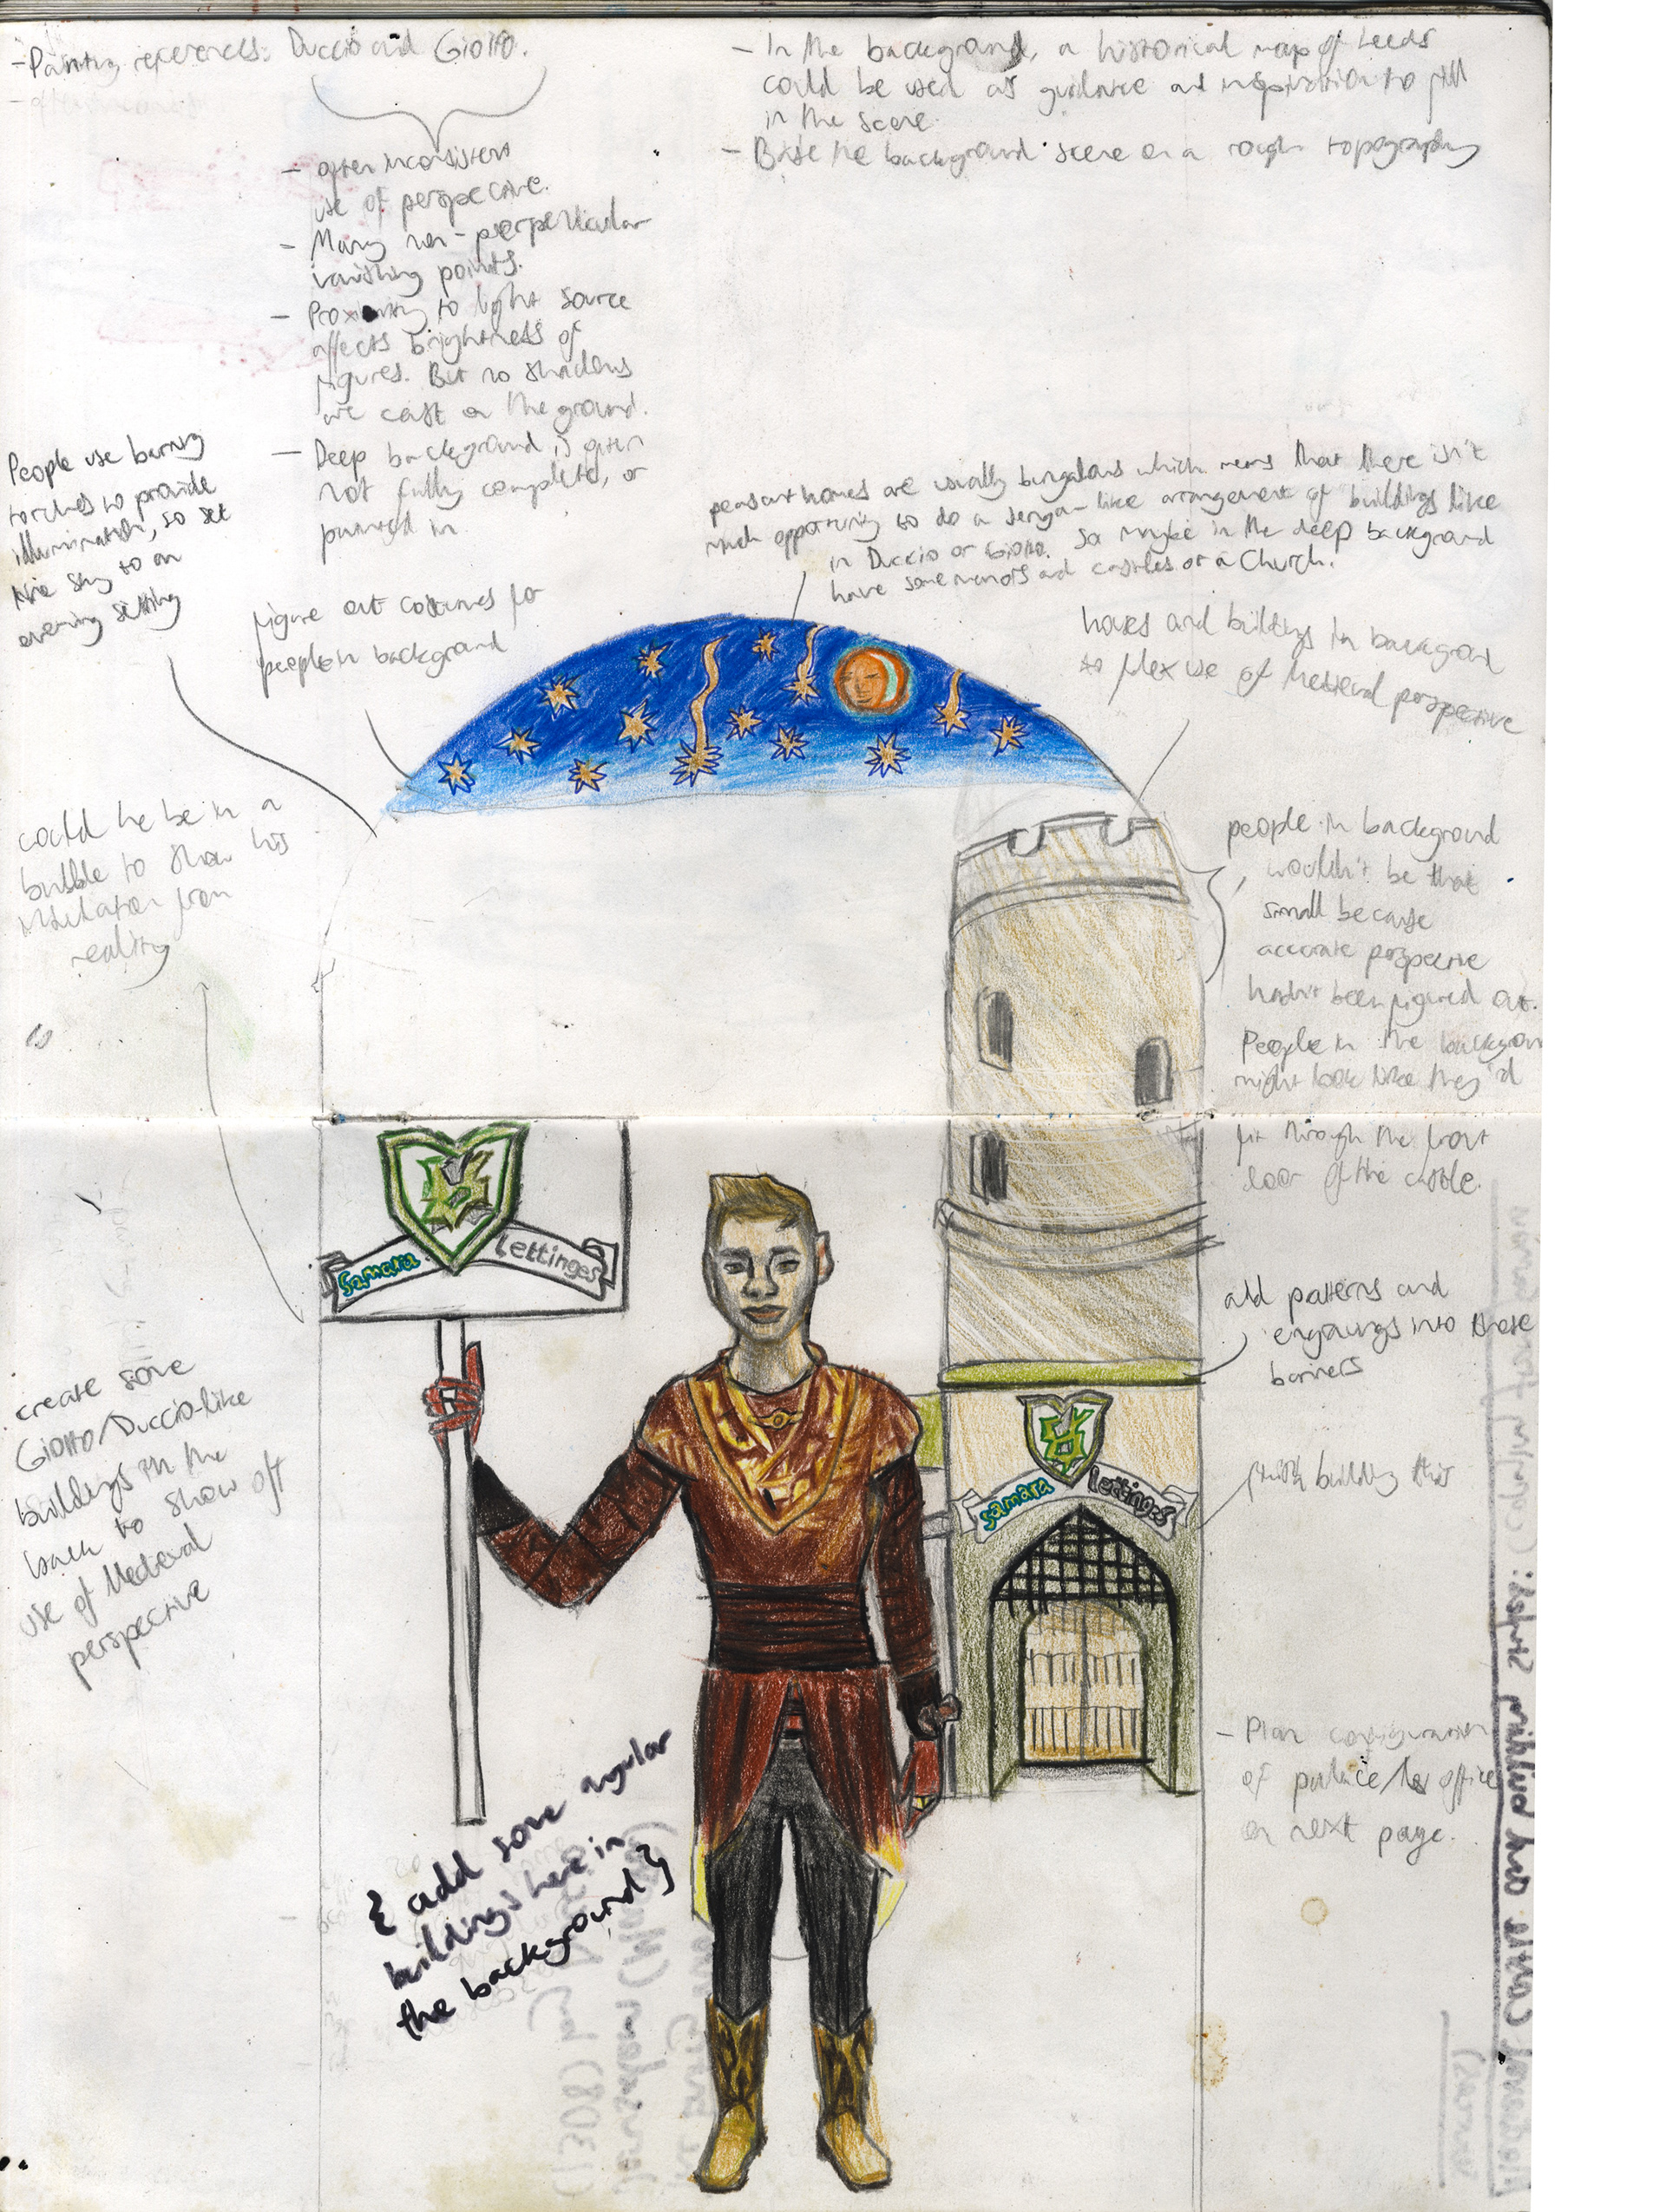 - Painting references: Duccio and Giotto.
- often inconsistent
use of perspective.
- Many non-perpendicular
vanishing points.
- Proximity to light source
affects brightness of
figures. But no shadows
are cast on the ground.
- Deep background is often
not fully complete, or
painted in.
- In the background, a historical map of Leeds
could be used as guidance and inspiration to fill
in the scene.
- Base the background scene on a rough topography
People use burning
torches to provide
illumination, so set
the sky to an
evening setting
figure out costumes for
people in background
peasant homes are usually bungalows which means that there isn't
much opportunity to do a Jenga-like arrangement of buildings like
in Duccio or Giotto. So maybe in the deep background
have some manors and castles or a Church.
houses and buildings in background
to flex use of Medieval perspective
could he be in a
bubble to show his
insulation from
reality
people in background
wouldn't be that
small because
accurate perspective
hadn't been figured out.
People in the background
might look like they'd
fit through the front
door of the castle.
Samara Lettinges
add patterns and
engravings into these
banners
create some
Giotto/Duccio-like
buildings in the
back to show off
use of Medieval
perspective
finish building this
Samara Lettinges
- Plan configuration
of palace/ office
on next page.
{ add some angular
buildings here in
the background }